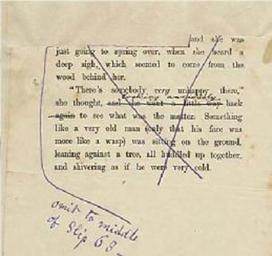 and she was
just going to spring over, when she heard a
deep sigh, which seemed to come from the
wood behind her.
"There's somebody very unhappy there,"
looking anxiously
she thought, and she went a little way back
again to see what was the matter. Something
like a very old man (only that his face was
more like a wasp) was sitting on the ground,
leaning against a tree, all huddled up together,
and shivering as if he were very cold.
omit to middle
of slip 68